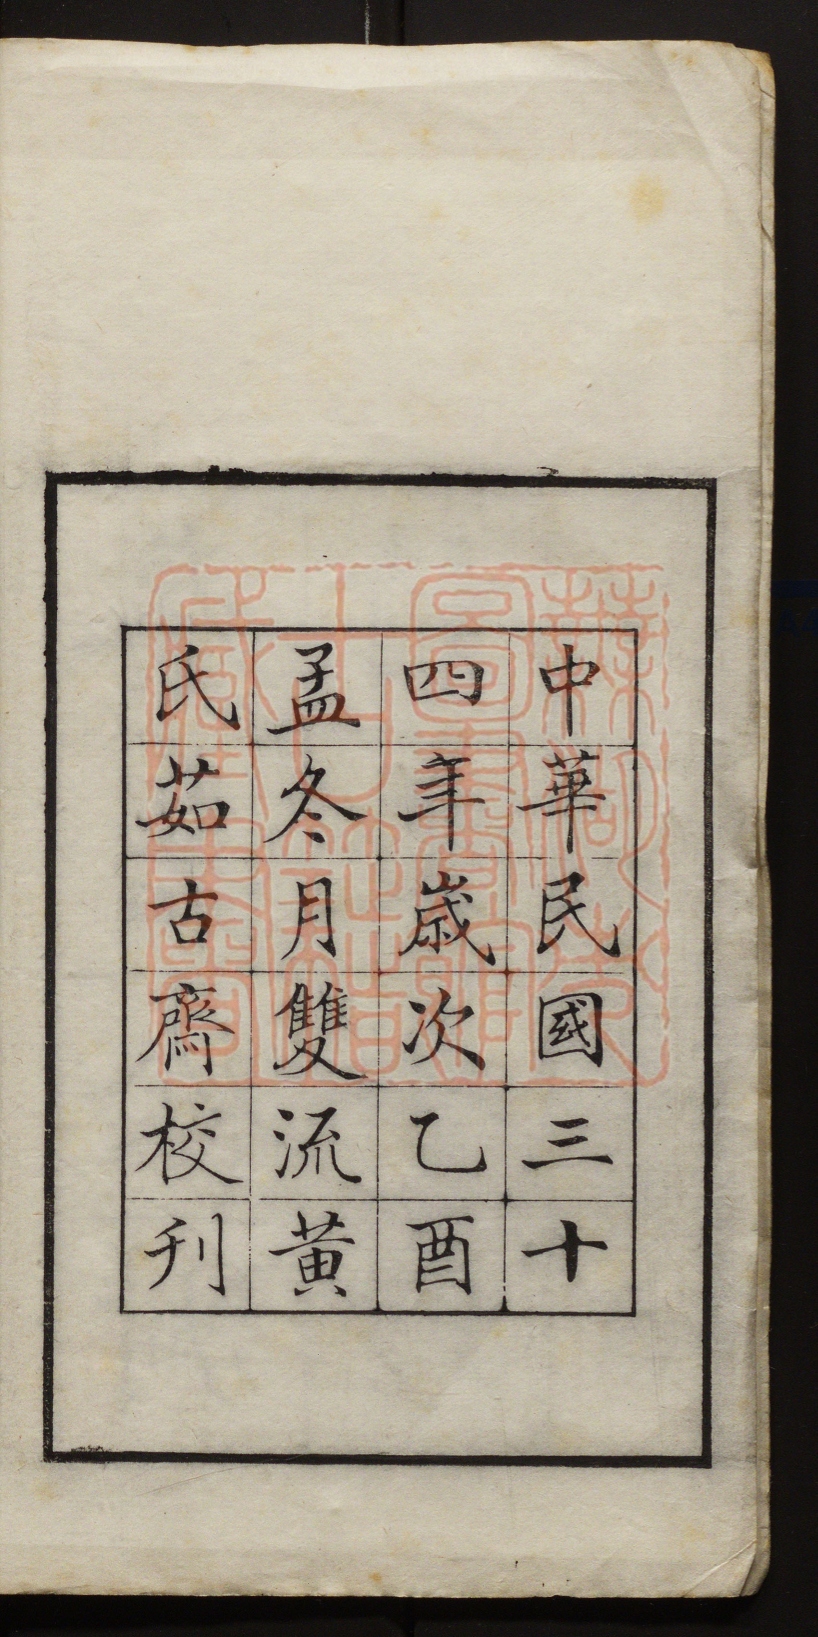 中華民國三十
四年歲次乙酉
孟冬月雙流黃
氏茹古齋校刊